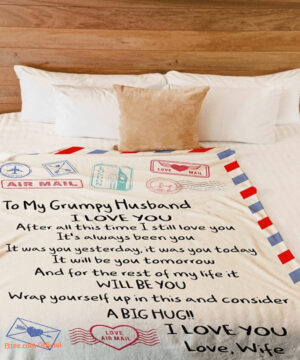 AIR MAIL
LOVE MAIL
To My Grumpy Husband
I LOVE YOU
After all this time I still love you
It's always been you
It was you yesterday, it was you today
It will be you tomorrow
And for the rest of my life it
WILL BE YOU
Wrap yourself up in this and consider
A BIG HUG!!
I LOVE YOU
Love, Wife
LOVE
AIR MAIL